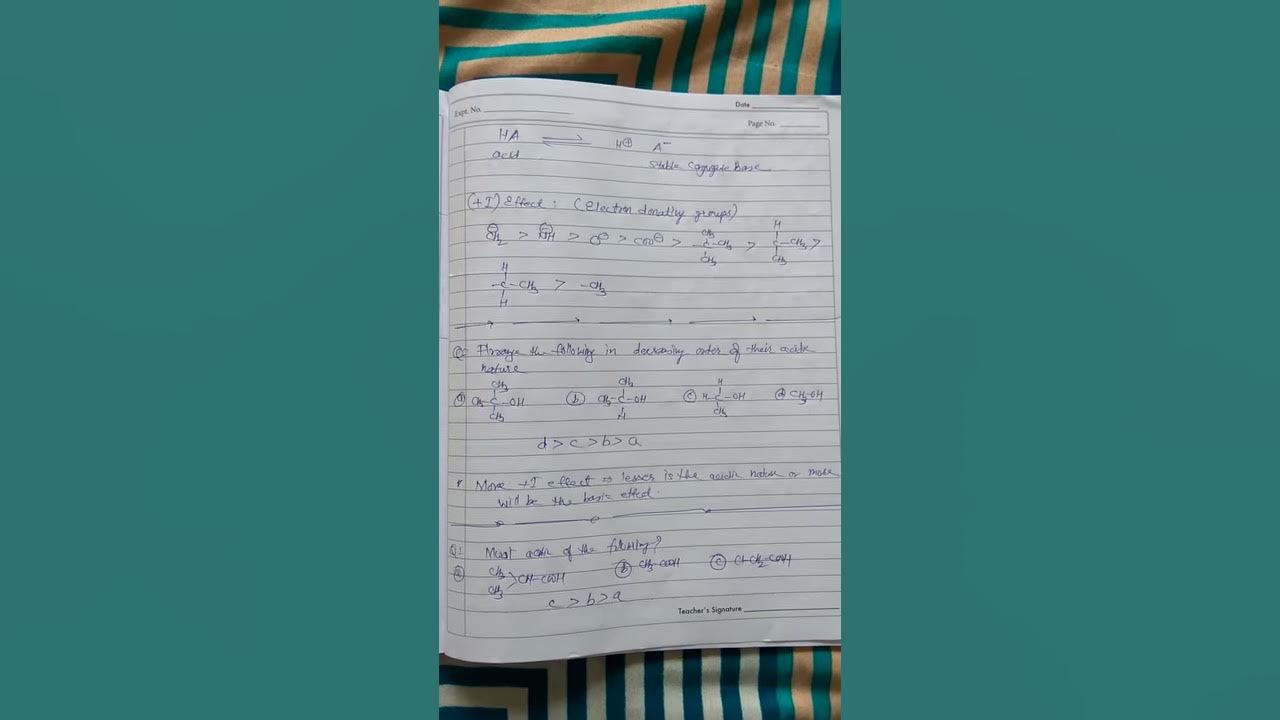 Date
Expt. No.
Page No.
HA ⇌ H⊕ A⁻
acid stable conjugate Base
(+I) Effect : (electron donating groups)
CH₃
H
CH₂⊖ > NH⊖ > O⊖ > COO⊖ > -C-CH₃ > -C-CH₃ >
CH₃
CH₃
H
-C-CH₃ > -CH₃
H
Q: Arrange the following in decreasing order of their acidic
nature
CH₃
CH₃
H
(a) CH₃-C-OH (b) CH₃-C-OH (c) H-C-OH (d) CH₃-OH
CH₃
H
CH₃
d > c > b > a
* More +I effect ⇒ lesser is the acidic nature or more
will be the basic effect.
Q: Most acidic of the following?
(a) CH₃
CH₃ >CH-COOH (b) CH₃-COOH (c) Cl-CH₂-COOH
c > b > a
Teacher's Signature